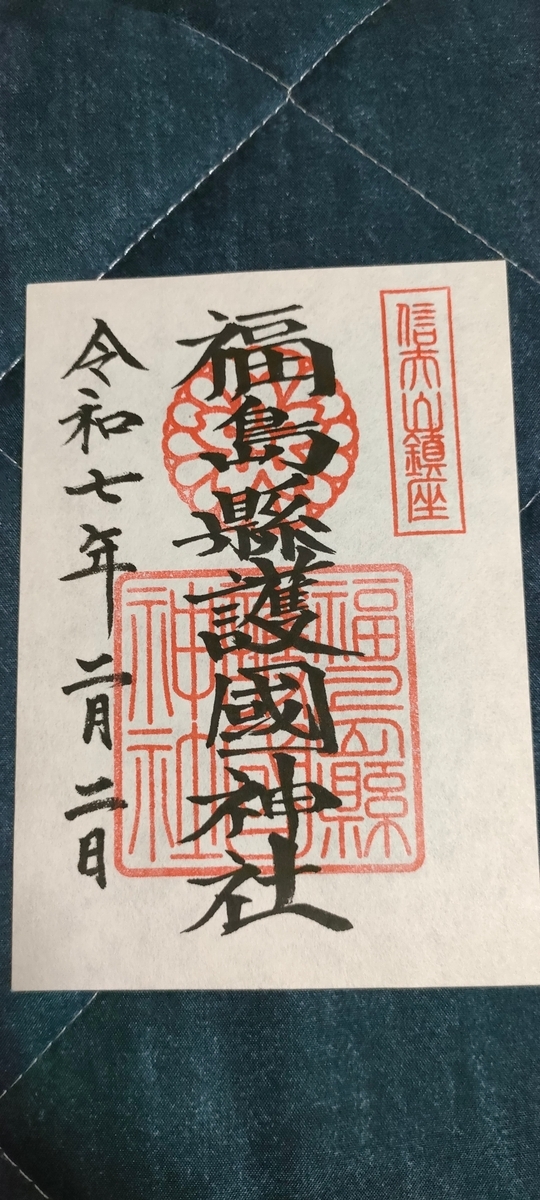 信夫山鎮座
福島縣護國神社
福島縣護國神社
令和七年二月二日